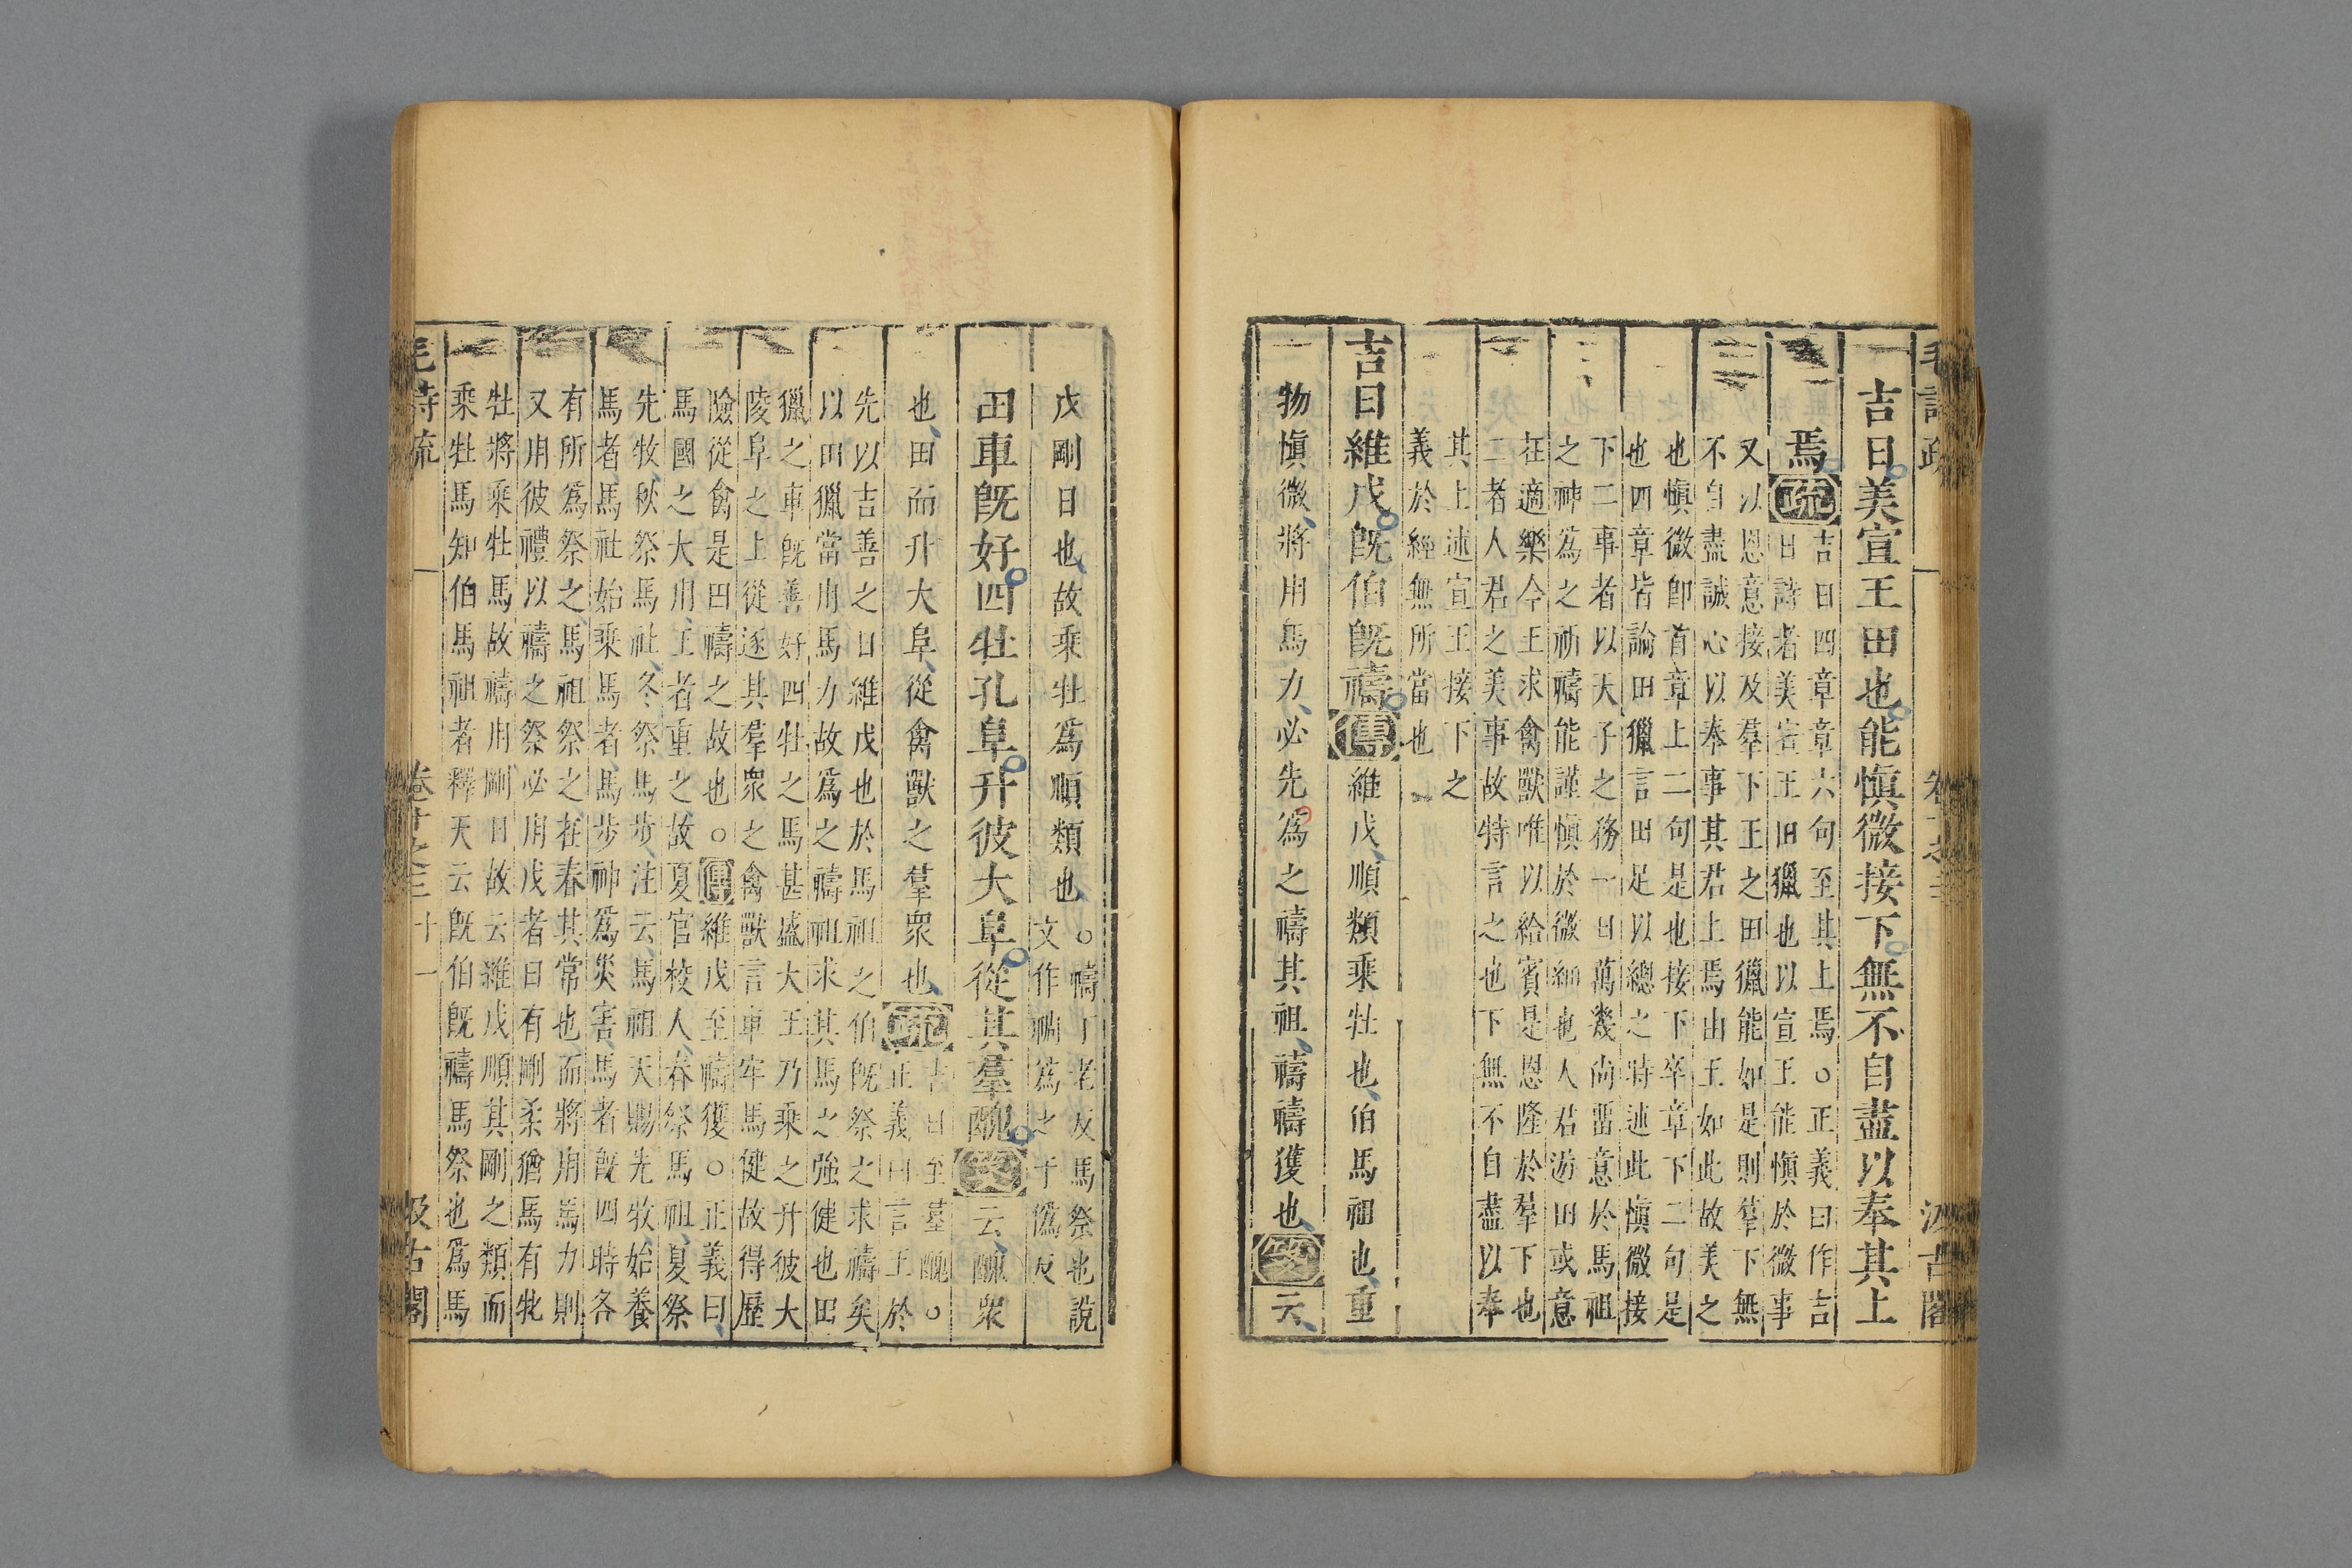 吉日美宣王田也能愼微接下無不自盡以奉其上
焉疏
吉日四章章六句至其上焉○正義曰作吉
日詩者美宣王田獵也以宣王能愼於微事
又以恩意接及羣下王之田獵能如是則羣下無
不自盡誠心以奉事其君上焉由王如此故美之
也愼微卽首章上二句是也接下卒章下二句是
也四章皆論田獵言田足以總之特述此愼微接
下二事者以天子之務一日萬幾尚畱意於馬祖
之神爲之祈禱能謹愼於微細也人君遊田或意
在適樂今王求禽獸唯以給賓是恩隆於羣下也
二者人君之美事故特言之也下無不自盡以奉
其上述宣王接下之
義於經無所當也
吉日維戊旣伯旣禱傳維戊順類乘牡也伯馬祖也重
物愼微將用馬力必先爲之禱其祖禱禱獲也箋云
戊剛日也故乘牡爲順類也
○禱丁老反馬祭也說
文作禂爲之于僞反
田車旣好四牡孔阜升彼大阜從其羣醜箋云醜衆
也田而升大阜從禽獸之羣衆也疏
吉日至羣醜○
正義曰言王於
先以吉善之日維戊也於馬祖之伯旣祭之求禱矣
以田獵當用馬力故爲之禱祖求其馬之強健也田
獵之車旣善好四牡之馬甚盛大王乃乘之升彼大
陵阜之上從逐其羣衆之禽獸言車牢馬健故得歷
險從禽是田禱之故也○傳維戊至禱獲○正義曰
馬國之大用王者重之故夏官校人春祭馬祖夏祭
先牧秋祭馬社冬祭馬步注云馬祖天賜先牧始養
馬者馬社始乘馬者馬步神爲災害馬者旣四時各
有所爲祭之馬祖祭之在春其常也而將用馬力則
又用彼禮以禱之祭必用戊者日有剛柔猶馬有牝
牡將乘牡馬故禱用剛日故云維戊順其剛之類而
乘牡馬知伯馬祖者釋天云旣伯旣禱馬祭也爲馬
毛詩疏 卷十之三 十一 汲古閣